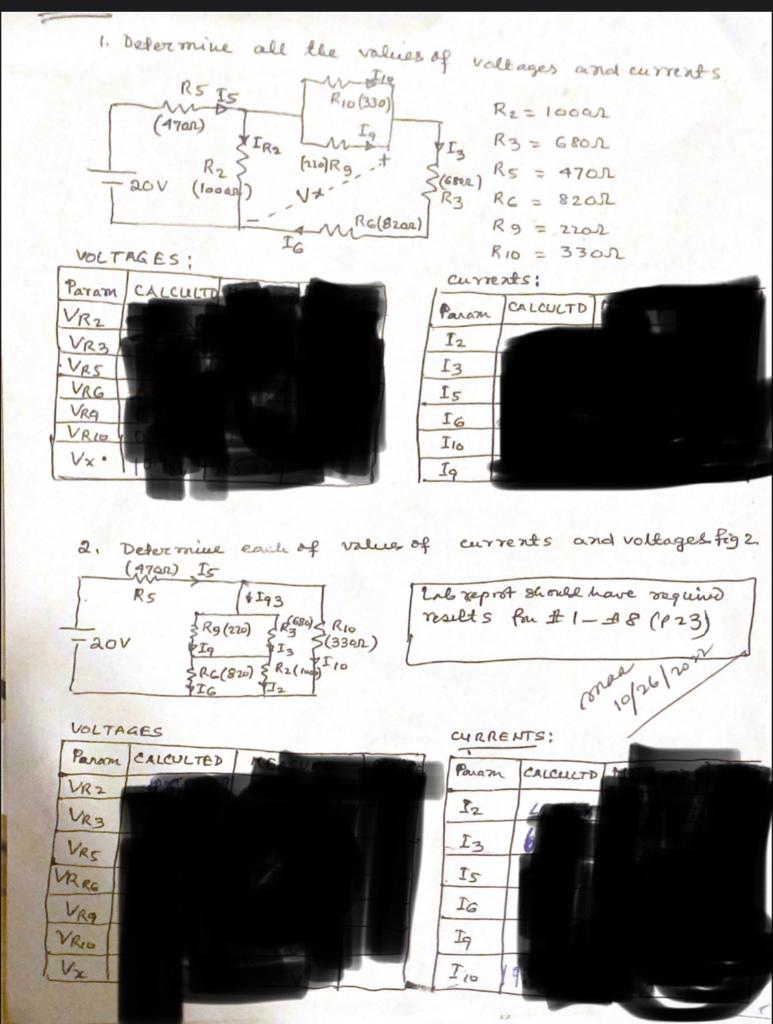 1. Determine all the values of voltages and currents.
R5 I5
(470Ω)
I10
R10 (330)
I9
(220) R9
IR2
R2
(1000Ω)
20V
+
Vx
−
I3
(680Ω)
R3
R6 (820Ω)
I6
R2 = 1000Ω
R3 = 680Ω
R5 = 470Ω
R6 = 820Ω
R9 = 220Ω
R10 = 330Ω
VOLTAGES:
Param CALCULTD
VR2
VR3
VR5
VR6
VR9
VR10
Vx
Currents:
Param CALCULTD
I2
I3
I5
I6
I10
I9
2. Determine each of values of currents and voltages. fig 2
(470Ω) I5
R5
20V
I93
R9 (220)
I9
R3 (680)
I3
R10
(330Ω)
I10
R6 (820)
I6
R2 (100
I2
Lab report should have required
results for #1 – #8 (P23)
10/26/2022
VOLTAGES
Param CALCULTED
VR2
VR3
VR5
VRR6
VR9
VR10
Vx
CURRENTS:
Param CALCULCTD
I2
I3
I5
I6
I9
I10